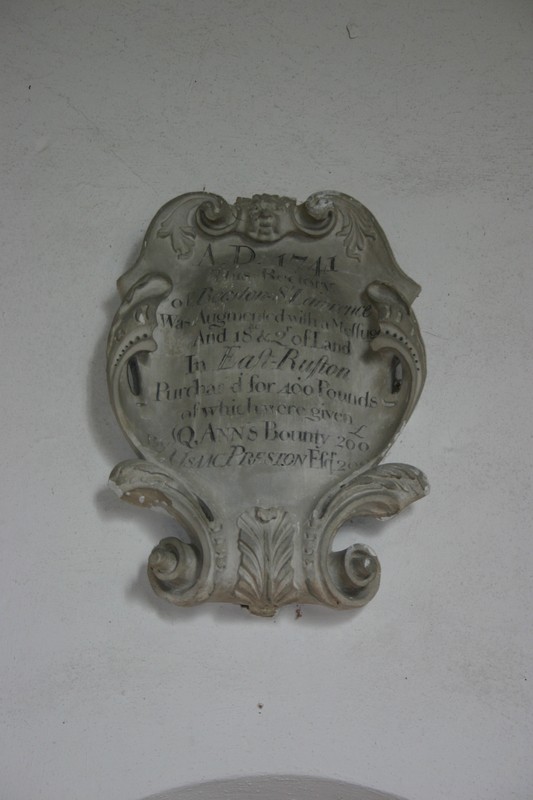 A.D. 1741
This Rectory
of Beeston St Lawrence
Was Augmented with a Messuge
And 18 of Land
In East-Ruston
Purchas'd for 400 Pounds
of which were given £
Q. ANNS Bounty 200
ISAAC PRESTON Esqr 200